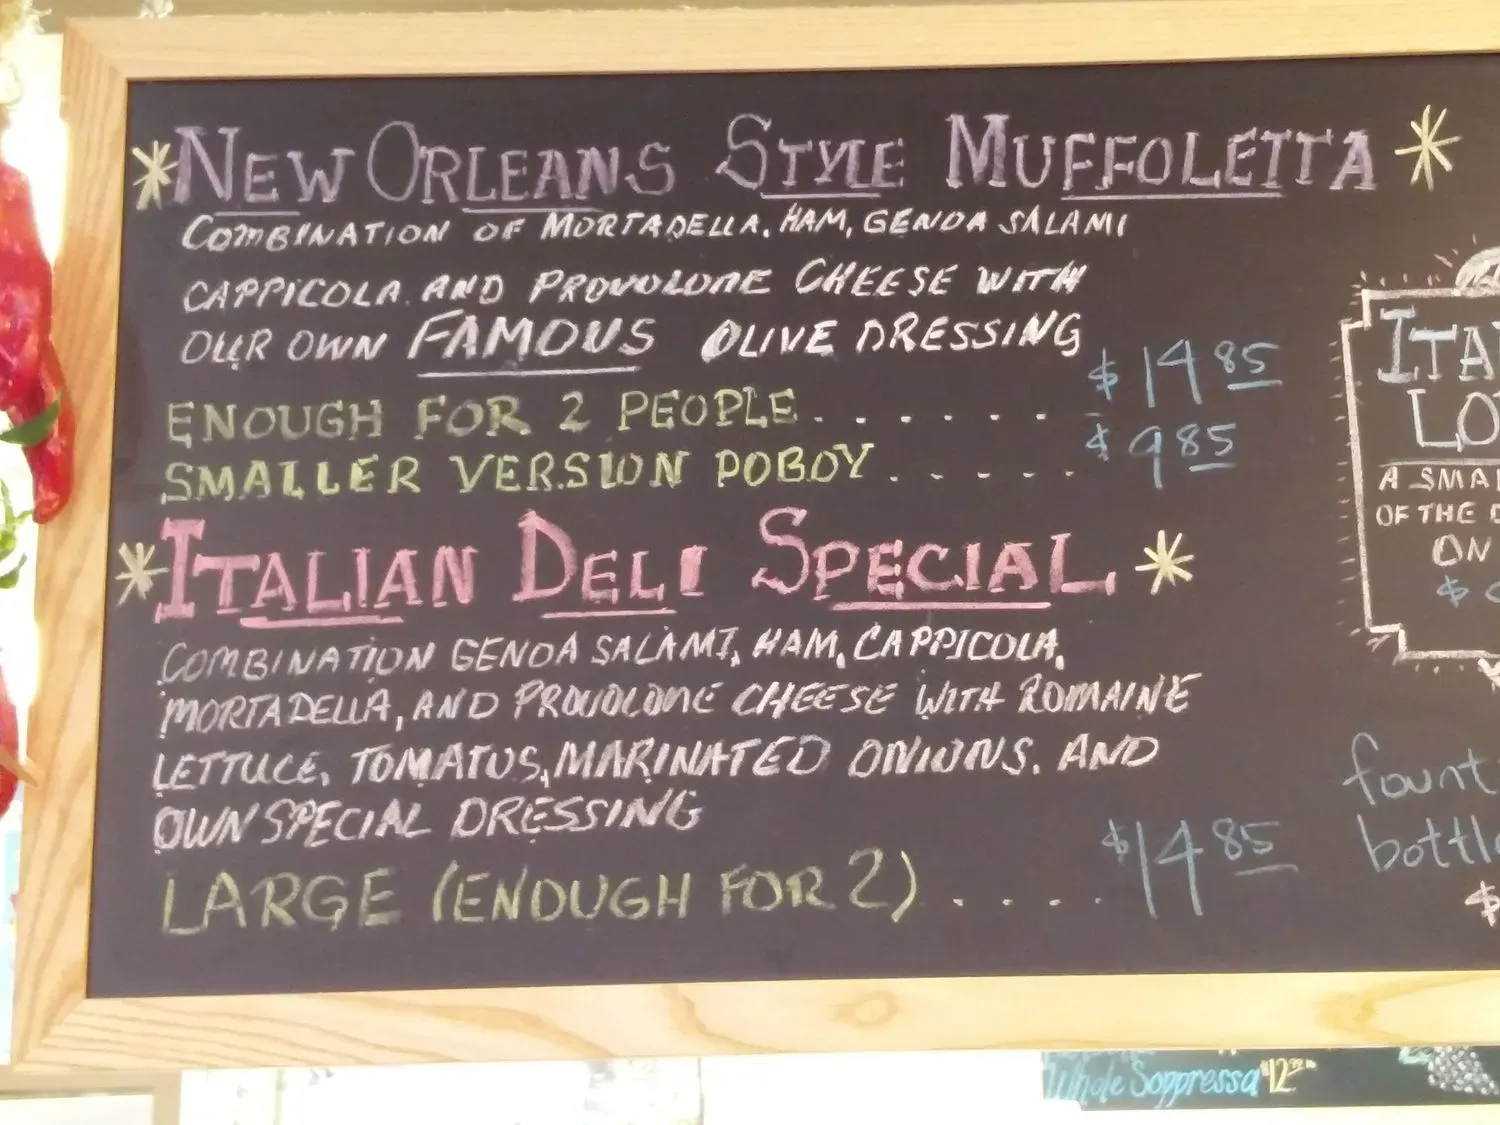 NEW ORLEANS STYLE MUFFOLETTA
COMBINATION OF MORTADELLA, HAM, GENOA SALAMI
CAPPICOLA AND PROVOLONE CHEESE WITH
OUR OWN FAMOUS OLIVE DRESSING
ENOUGH FOR 2 PEOPLE....... $14.85
SMALLER VERSION POBOY...... $9.85
ITALIAN DELI SPECIAL
COMBINATION GENOA SALAMI, HAM, CAPPICOLA,
MORTADELLA, AND PROVOLONE CHEESE WITH ROMAINE
LETTUCE, TOMATOS, MARINATED ONIONS. AND
OWN SPECIAL DRESSING
LARGE (ENOUGH FOR 2)..... $14.85
A
OF THE
ON
$
$
Whole Soppressa $12